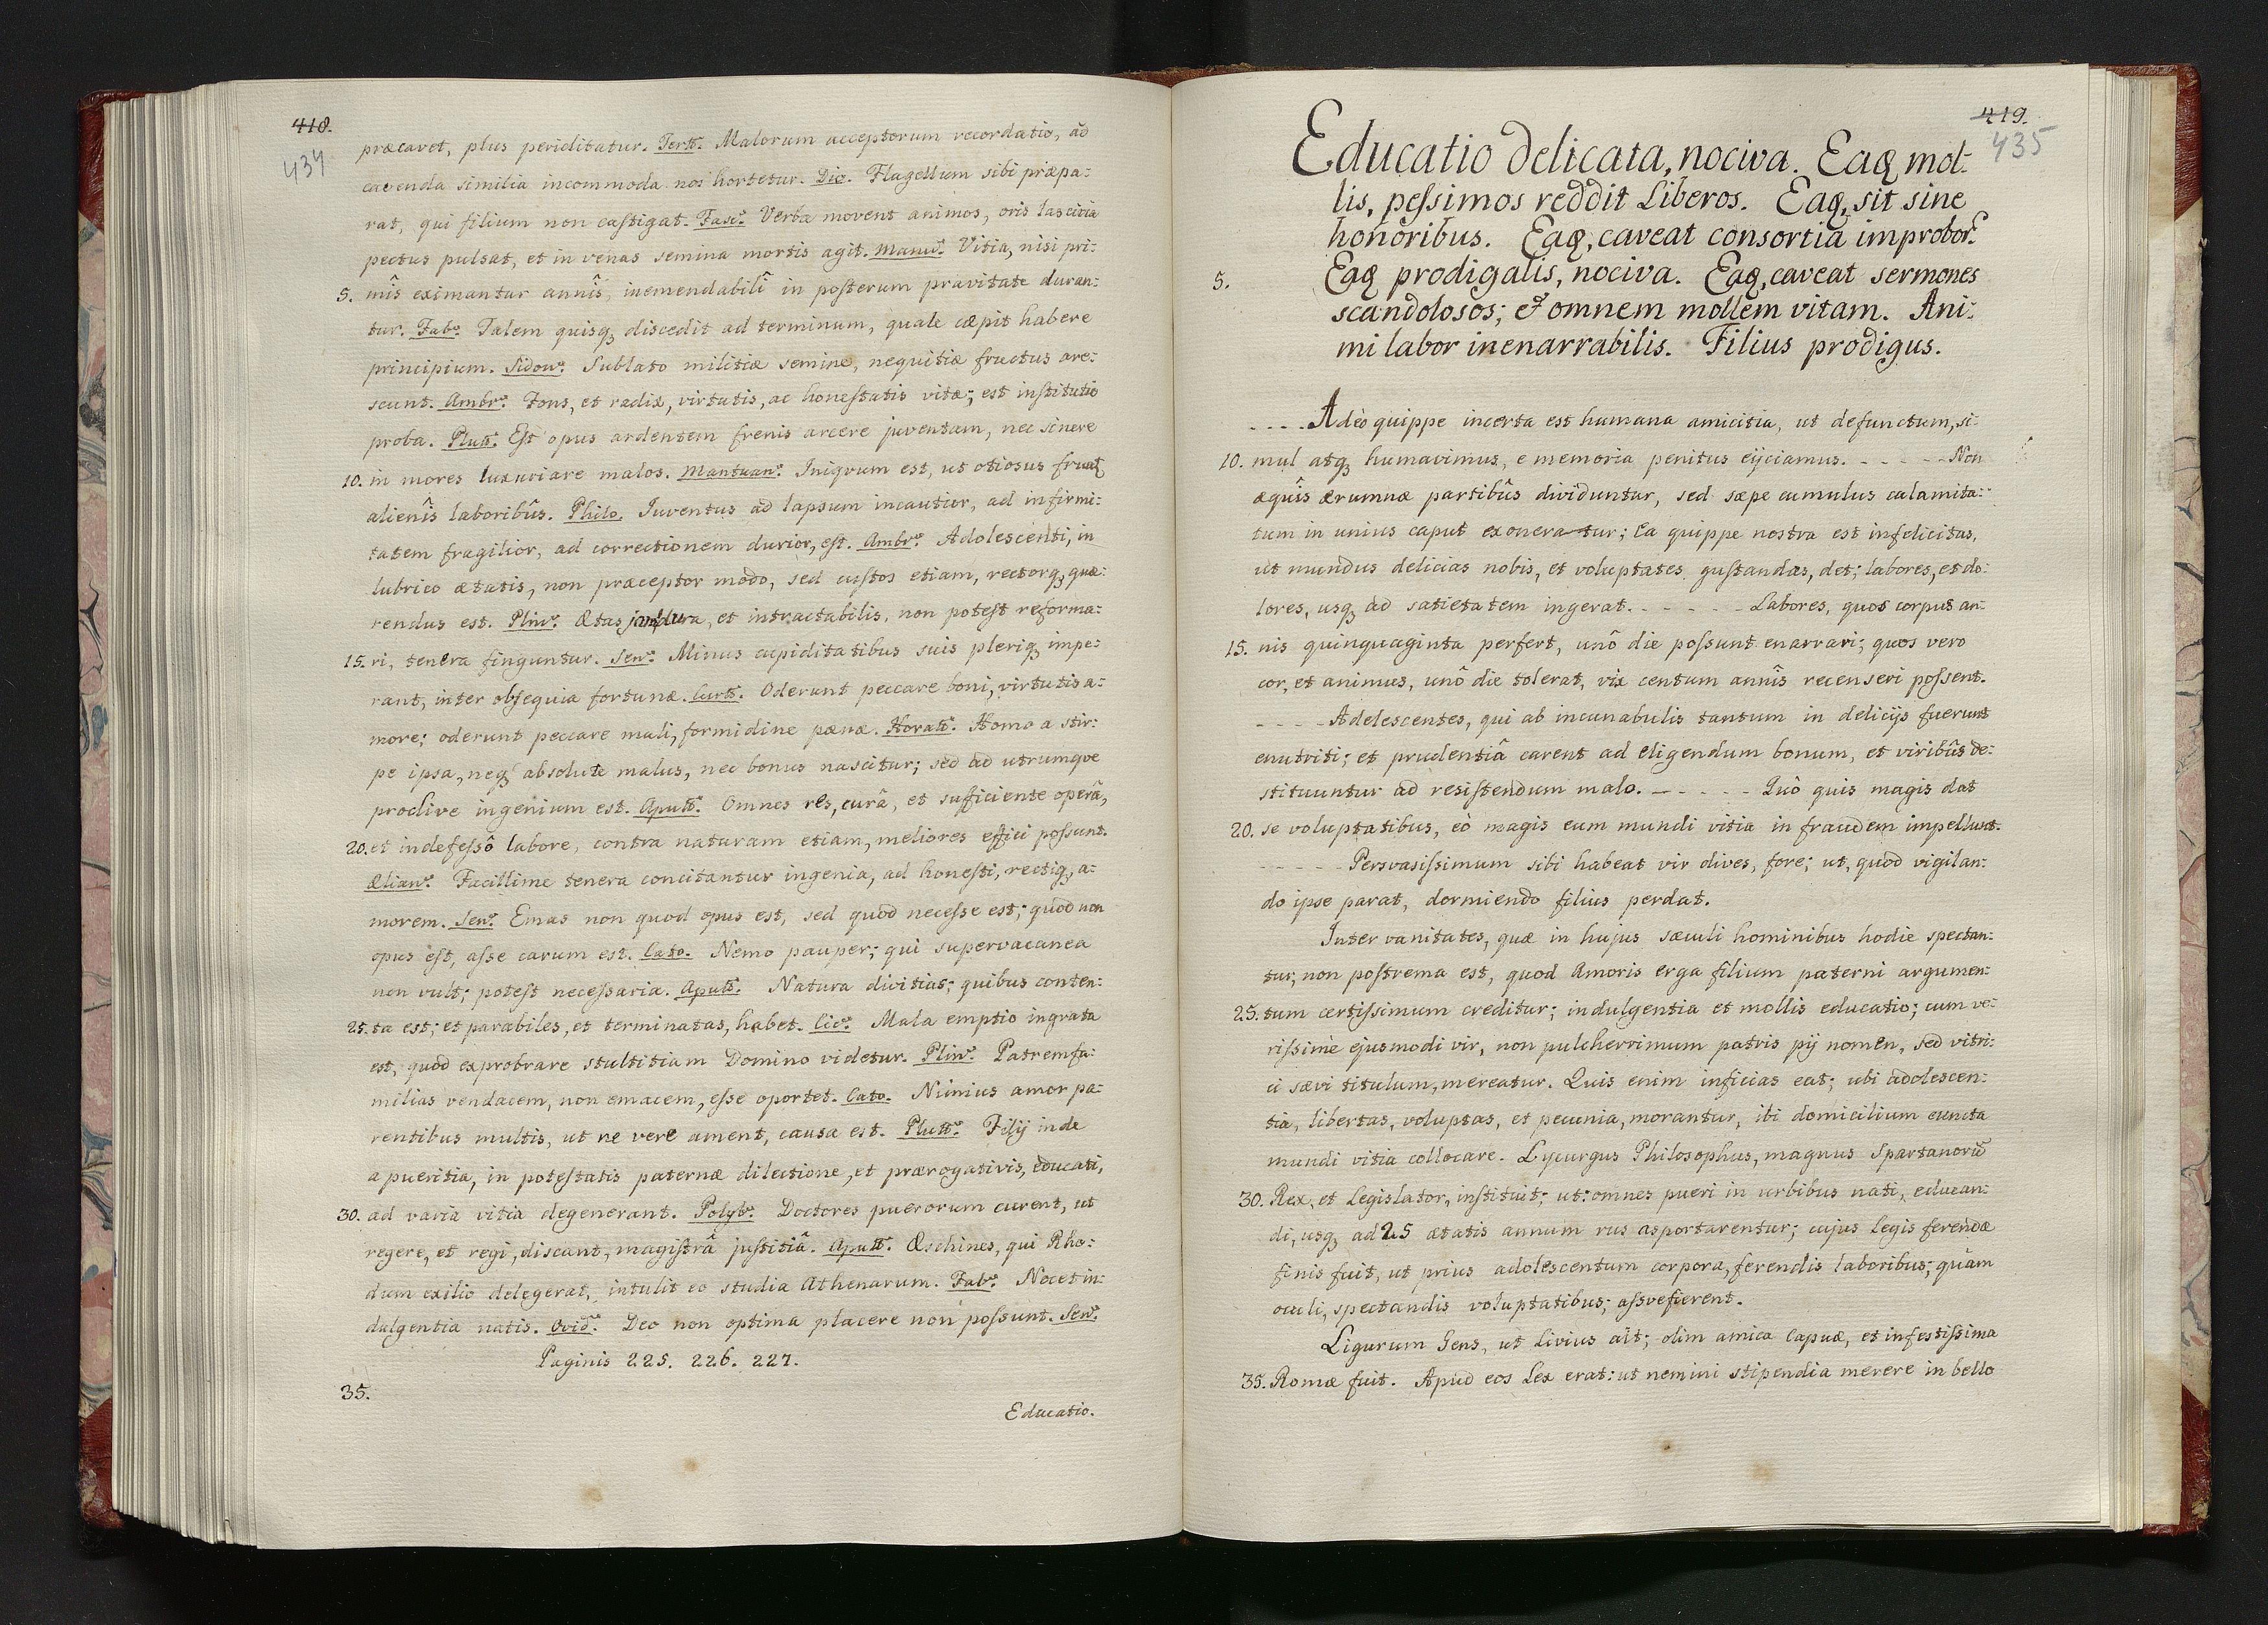 418.
434
præcavet, plus periclitatur. Tert. Malorum acceptorum recordatio, ad
cavenda similia incommoda nos hortetur. Dio. Flagellum sibi præpa:
rat, qui filium non castigat. Fasc. Verba movent animos, oris lascivia
pectus pulsat, et in venas semina mortis agit. Manud. Vitia, nisi pri:
5. mîs eximantur annîs, inemendabilî in posterum pravitate duran:
tur. Fab. Talem quisq; discedit ad terminum, quale cæpit habere
principium. Sidon. Sublato militiæ semine, nequitiæ fructus are:
scunt. Ambr. Fons, et radix, virtutis, ac honestatis vitæ; est institutio
proba. Plutt. Est opus ardentem frenis arcere juventam, nec sinere
10. in mores luxuriare malos. Mantuan. Iniqvum est, ut otiosus fruatq
alienîs laboribûs. Philo. Juventus ad lapsum incautior, ad infirmi:
tatem fragilior, ad correctionem durior, est. Ambr. Adolescenti, in
lubrico ætatis, non præceptor modo, sed custos etiam, rectorq; quæ:
rendus est. Plin. Ætas jam dura, et intractabilis, non potest reforma:
15. ri, tenera finguntur. Sen. Minus cupiditatibus suis pleriq; impe:
rant, inter obsequia fortunæ. Curt. Oderunt peccare boni, virtutis a:
more; oderunt peccare mali, formidine pænæ. Horatt. Homo a stir:
pe ipsa, neq; absolute malus, nec bonus nascitur; sed ad utrumqve
proclive ingenium est. Apull. Omnes res, curâ, et sufficiente operâ,
20. et indefessô labore, contra naturam etiam, meliores effici possunt.
Ælian. Facillime tenera concitantur ingenia, ad honesti, rectiq; a:
morem. Sen. Emas non quod opus est, sed quod necesse est; quod non
opus est, asse carum est. Cato. Nemo pauper; qui supervacanea
non vult; potest necessaria. Apull. Natura divitias; quibus conten:
25. ta est; et parabiles, et terminatas, habet. Cic. Mala emptio ingrata
est, quod exprobrare stultitiam Domino videtur. Plin. Patremfa:
milias vendacem, non emacem, esse oportet. Cato. Nimius amor pa:
rentibus multis, ut ne vere ament, causa est. Plutt. Filij inde
a pueritia, in potestatis paternæ dilectione, et prærogativis, educati,
30. ad varia vitia degenerant. Polyb. Doctores puerorum curent, ut
regere, et regi, discant, magistrâ justitiâ. Apull. Æschines, qui Rho:
dum exilio delegerat, intulit eo studia Athenarum. Fab. Nocet in:
dulgentia natis. Ovid. Deo non optima placere non possunt. Sen.
Paginis 225. 226. 227.
35.
Educatio.
419.
435
Educatio delicata, nociva. Eaq mol:
lis, pessimos reddit Liberos. Eaq, sit sine
honoribus. Eaq, caveat consortia improbor.
5. Eaq prodigalis, nociva. Eaq, caveat sermones
scandolosos; et omnem mollem vitam. Ani:
mi labor inenarrabilis. Filius prodigus.
- - - - Adeò quippe incerta est humana amicitia, ut defunctum, si:
10. mul atq; humavimus, e memoria penitus eijciamus. - - - - - Non
æquîs ærumnæ partibûs dividuntur, sed sæpe cumulus calamita:
tum in unius caput exoneratur; Ea quippe nostra est infelicitas,
ut mundus delicias nobis, et voluptates gustandas, det; labores, et do:
lores, usq; ad satietatem ingerat. - - - - - Labores, quos corpus an:
15. nis quinquaginta perfert, unô die possunt enarrari; quos vero
cor, et animus, unô die tolerat, vix centum annîs recenseri possent.
- - - - Adelescentes, qui ab incunabulis tantum in delicijs fuerunt
enutriti; et prudentiâ carent ad eligendum bonum, et viribûs de:
stituuntur ad resistendum malo. - - - - - Quò quis magis dat
20. se voluptatibus, eò magis eum mundi vitia in fraudem impellunt.
- - - - - Persvasissimum sibi habeat vir dives, fore; ut, quod vigilan:
do ipse parat, dormiendo filius perdat.
Inter vanitates, quæ in hujus sæculi hominibus hodie spectan:
tur, non postrema est, quod Amoris erga filium paterni argumen:
25. tum certissimum creditur; indulgentia et mollis educatio; cum ve:
rissimè ejusmodi vir, non pulcherrimum patris pij nomen, sed vitri:
ci sævi titulum, mereatur. Quis enim inficias eat; ubi adolescen:
tia, libertas, voluptas, et pecunia, morantur, ibi domicilium cuncta
mundi vitia collocare. Lycurgus Philosophus, magnus Spartanorũ
30. Rex, et Legislator, instituit; ut: omnes pueri in urbibus nati, educan:
di, usq; ad 25 ætatis annum rus asportarentur; cujus Legis ferendæ
finis fuit, ut prius adolescentum corpora, ferendis laboribus; quàm
oculi, spectandis voluptatibus; assvefierent.
Ligurum Gens, ut Livius aït; olim amica Capuæ, et infestissima
35. Romæ fuit. Apud eos Lex erat: ut nemini stipendia merere in bello